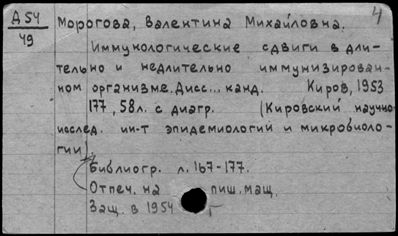 А54
49
4
Морогова, Валентина Михайловна.
Иммунологические сдвиги в дли-
тельно и недлительно иммунизирован-
ном организме. Дисс... канд. Киров, 1953
177, 58л. с диагр. (Кировский научно-
исслед. ин-т эпидемиологии и микробиоло-
гии)
Библиогр. л. 167-177.
Отпеч. на пиш. маш.
Защ. в 1954 г.